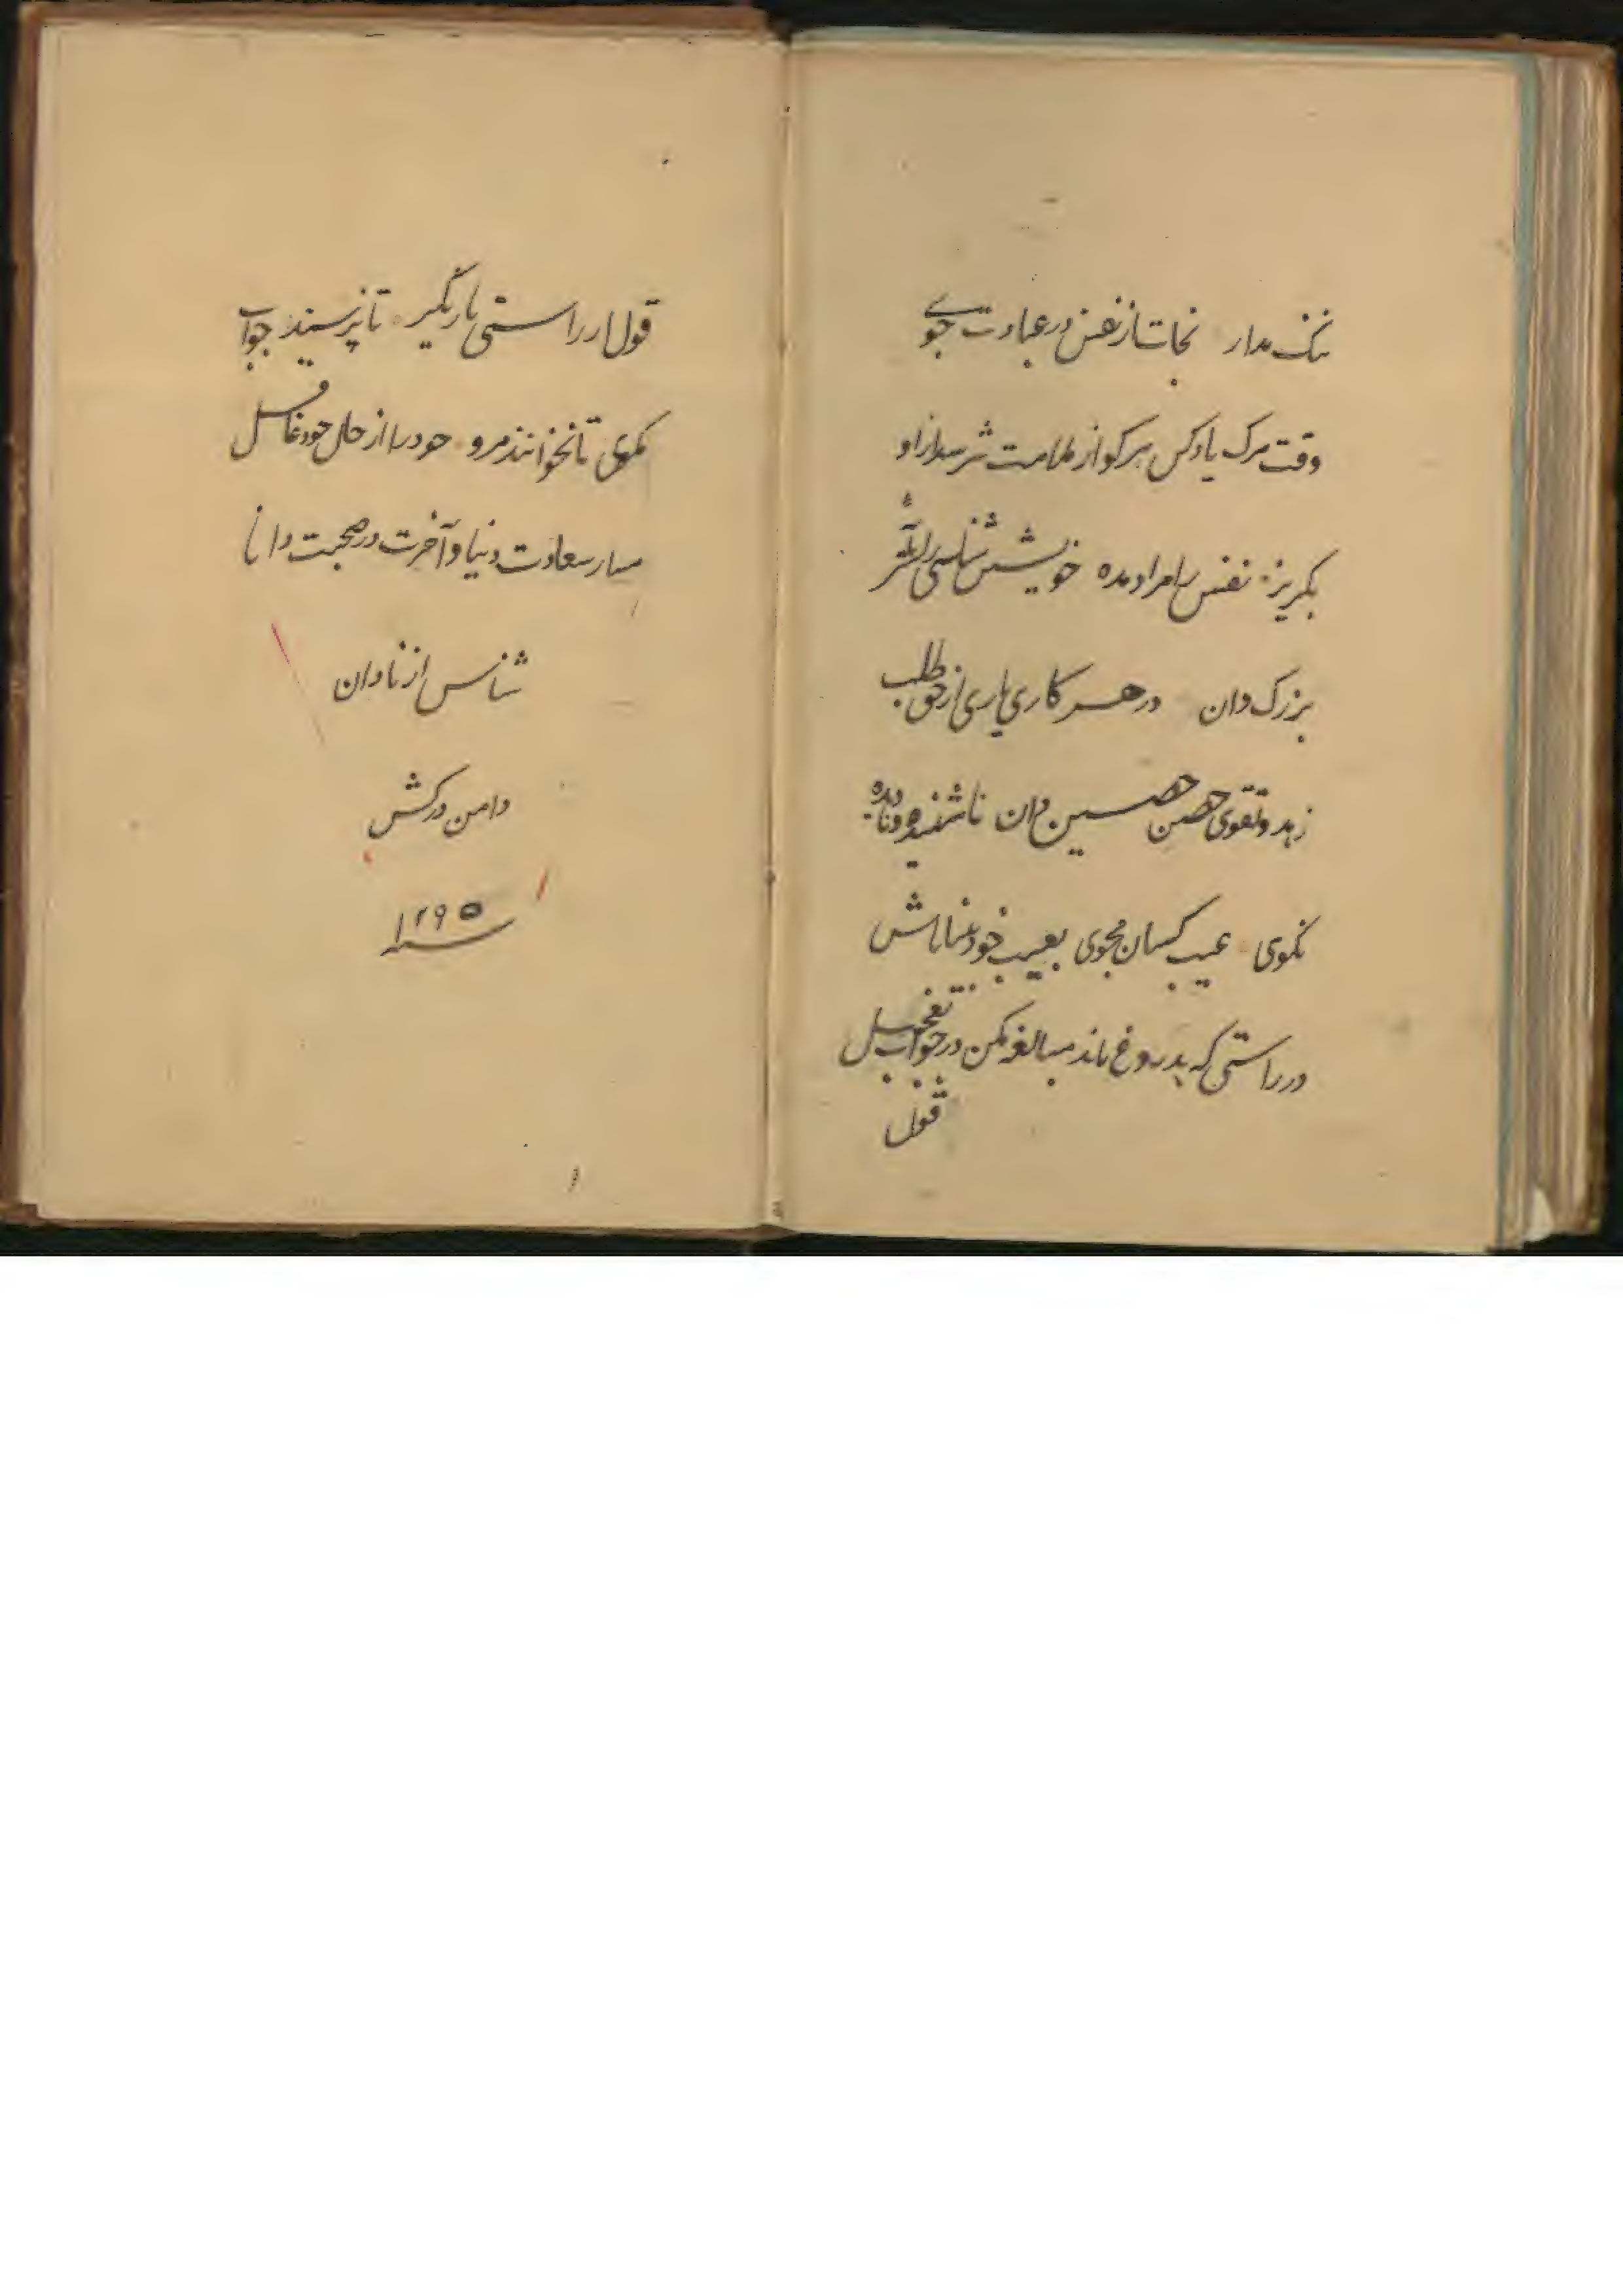 ننک مدار نجات از نفس در عبادت جوی
وقت مرک یاد کن هر کو از ملامت نترسد از او
بکریز نفس را مراد مده خویشتن شناسی را
بزرک دان در هر کاری یاری از حق طلب
زهد و تقوی حصن حصین دان ناشنیده و نادیده
مکوی عیب کسان مجوی بعیب خود بینا باش
در راستی که بدروغ ماند مبالغه مکن در جواب تعجیل
قول
قول از راستی باز مگیر تا نپرسند جواب
مکوی تا نخوانند مرو خود را از حال خود غافل
مدار سعادت دنیا و آخرت در صحبت دانا
شناس از نادان
دامن درکش
سنه ۱۲۹۵